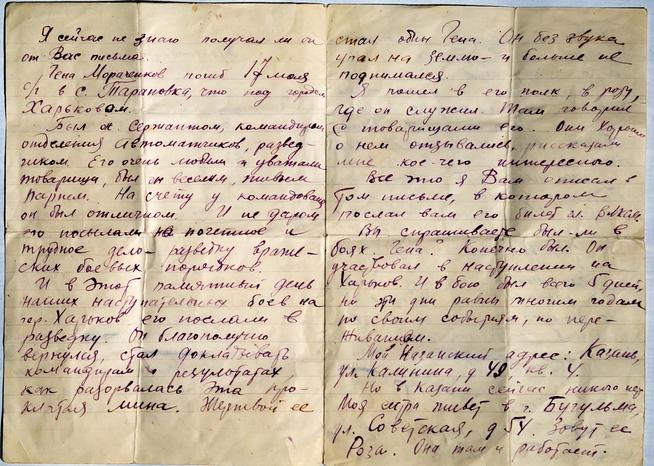 Я сейчас не знаю получал ли он
от Вас письма.
Гена Мораченков погиб 17 мая
с/г в с. Тарановка, что под городом
Харьковом.
Был он сержантом, командиром
отделения автоматчиков, развед-
чиком. Его очень любили и уважали
товарищи, был он веселым, живым
парнем. На счету у командования
он был отличном. И не даром
его посылали на почетное и
трудное дело – разведку враже-
ских боевых порядков.
И в этот памятный день
наших наступательных боев на
гор. Харьков его послали в
разведку. Он благополучно
вернулся, стал докладывать
командирам о результатах
как разорвалась эта про-
клятая мина. Жертвой ее
стал один Гена. Он без звука
упал на землю – и больше не
поднимался.
Я пошел в его полк, в роту,
где он служил. Там говорил
с товарищами его. Они хорошо
о нем отзывались, рассказали
мне кое-чего интересного.
Все это я Вам описал в
том письме, в котором
послал вам его билет чл. ВЛКСМ.
Вы спрашиваете был ли в
боях Гена? Конечно был. Он
участвовал в наступлении на
Харьков. И в бою был всего 5 дней,
но эти дни равны многим годам
по своим событиям, по пере-
живаниям.
Мой Казанский адрес: Казань,
ул. Калинина, д 49 кв. 4.
Но в Казани сейчас никого нет
Моя сестра живет в г. Бугульма,
ул. Советская, д 54. Зовут ее
Роза. Она там и работает.